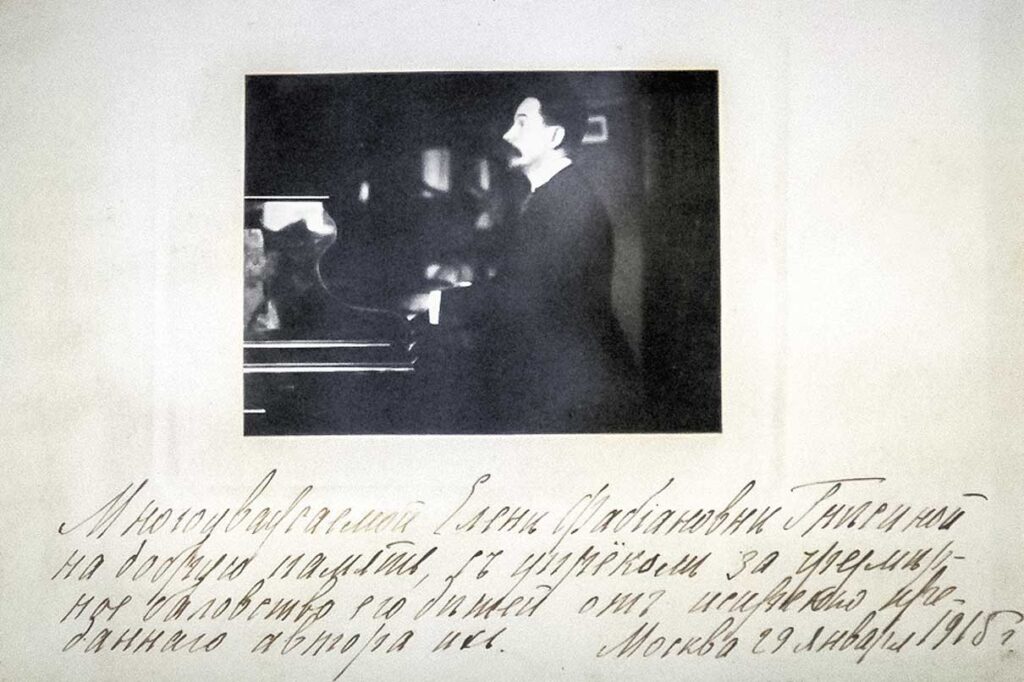 Многоуважаемой Еленѣ Фабіановнѣ Гнѣсиной
на добрую память, съ упрёкомъ за чрезмѣр-
ное баловство его дѣтей отъ искренно пре-
даннаго автора ихъ. Москва 29 января 1915 г.